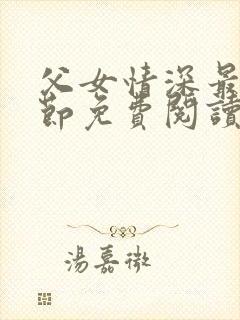 父女情深最
節免費閱讀
湯嘉微